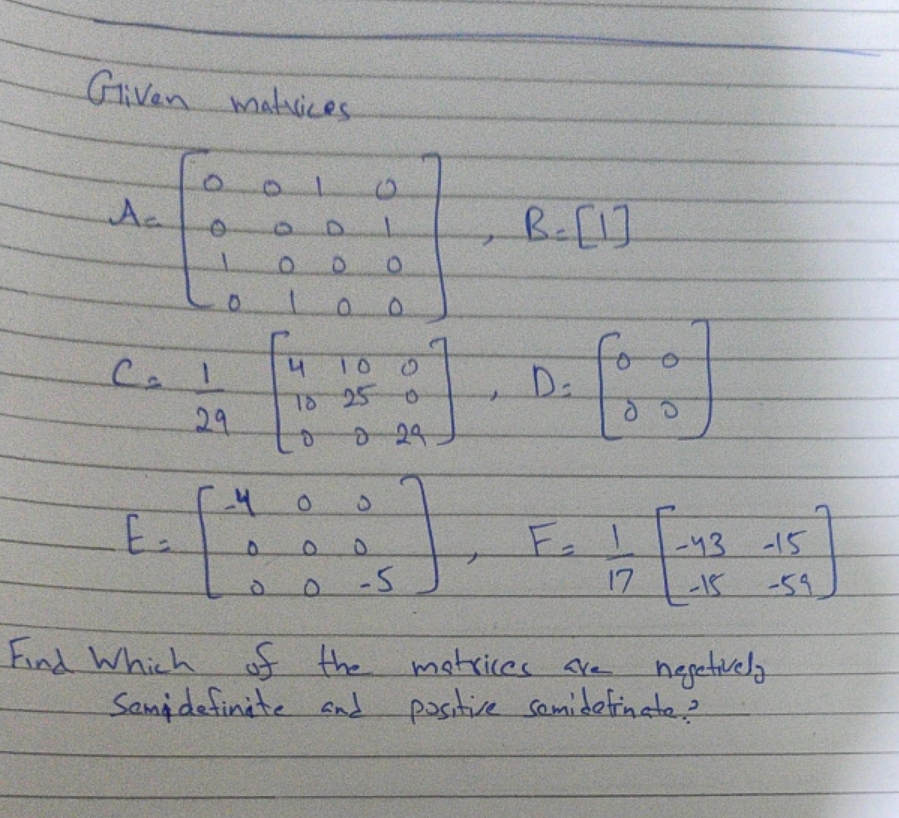 Given matrices
A= [0 0 1 0
0 0 0 1
1 0 0 0
0 1 0 0] , B=[1]
C= 1/29 [4 10 0
10 25 0
0 0 29] , D= [0 0
0 0]
E= [-4 0 0
0 0 0
0 0 -5] , F= 1/17 [-43 -15
-15 -59]
Find Which of the matrices are negatively
Semidefinite and positive semidefinate?